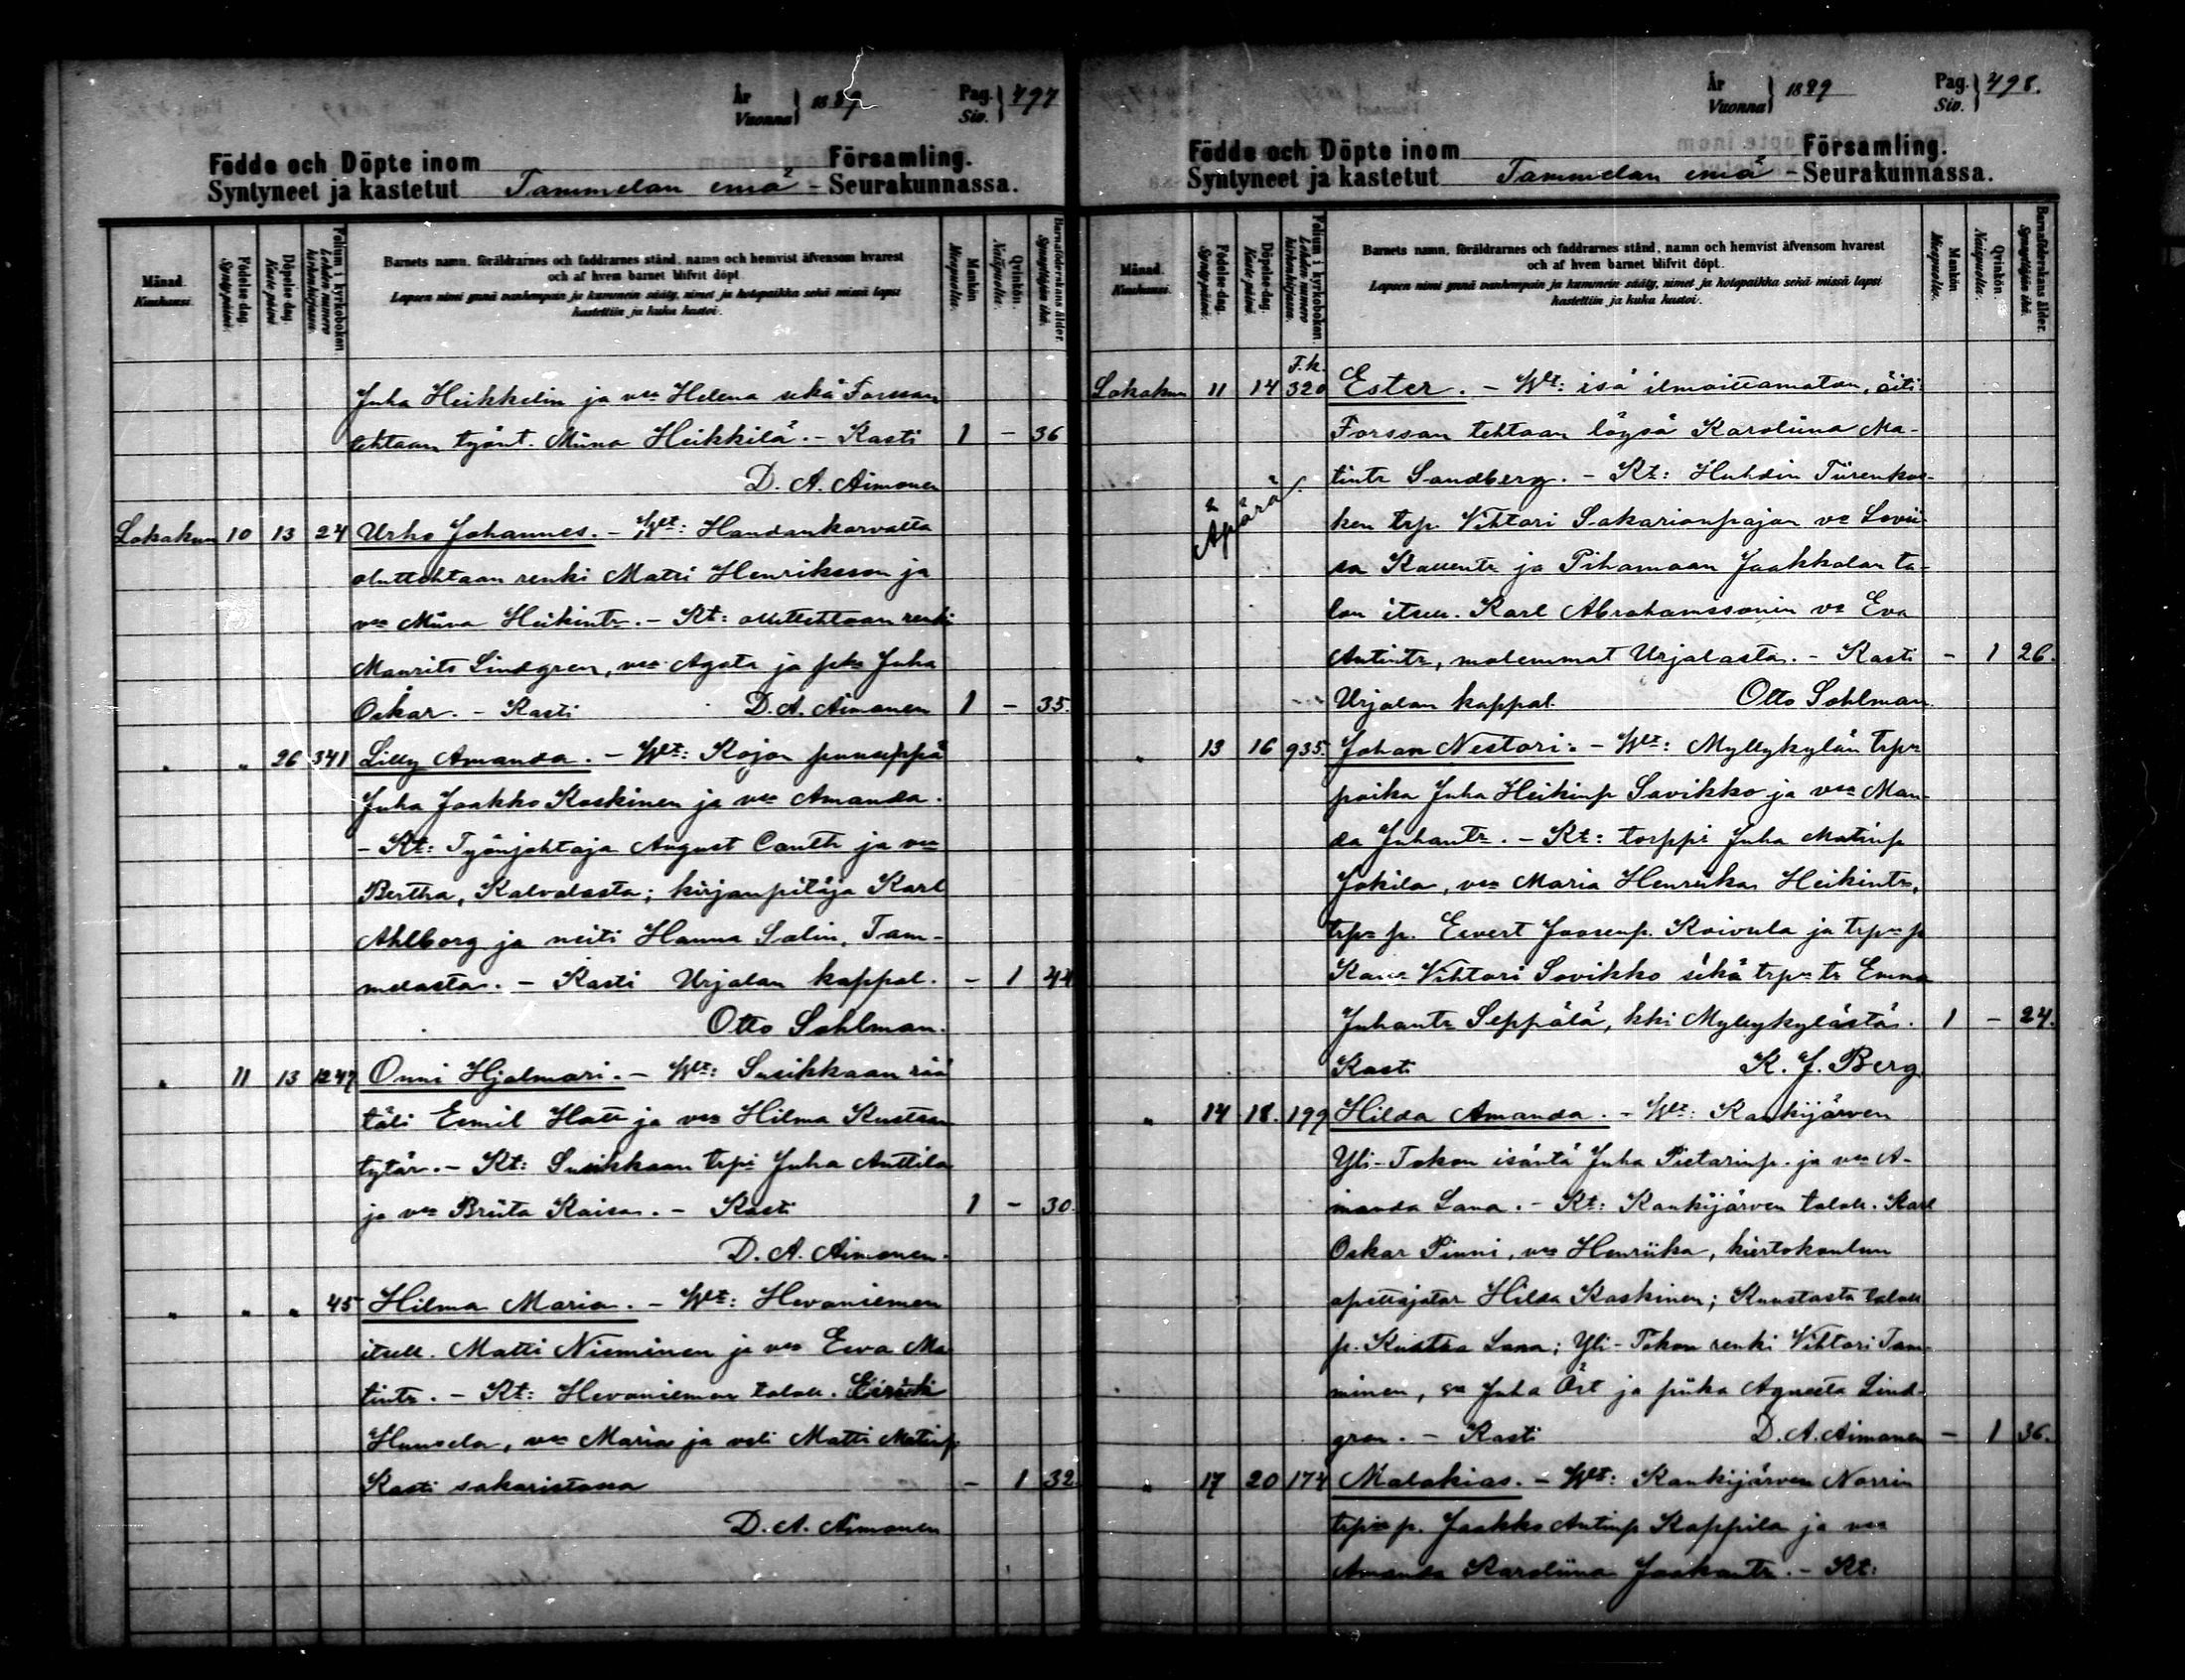 År
Vuonna } 1889
Pag.
Siv. } 497
Födde och Döpte inom Församling.
Syntyneet ja kastetut Tammelan emä - Seurakunnassa.
Månad. Kuukausi.
Födelse dag. Synty päivä.
Döpelse dag. Kaste päivä.
Folium i kyrkoboken. Lehden numero kirkonkirjassa.
Barnets namn, föräldrarnes och faddrarnes stånd, namn och hemvist äfvensom hvarest
och af hvem barnet blifvit döpt.
Lapsen nimi ynnä vanhempain ja kummein sääty, nimet ja kotopaikka sekä missä lapsi
kastettiin ja kuka kastoi.
Mankön. Miespuolta.
Qvinkön. Naispuolta.
Barnaföderskans ålder. Synnyttäjän ikä.
Juha Heikkelin ja vmo Helena sekä Forssan
tehtaan työnt. Miina Heikkilä. - Kasti 1 - 36
D. A. Aimonen
Lokakun 10 13 24 Urho Johannes. - Wt: Haudankorvalta
oluttehtaan renki Matti Henriksson ja
vmo Miina Heikintr. - Kt: oluttehtaan renki
Maurits Lindgren, vmo Agata ja pka Juha
Oskar. - Kasti D. A. Aimonen 1 - 35.
" " 26 341 Lilly Amanda. - Wt: Kojon punseppä
Juha Jaakko Koskinen ja vmo Amanda.
- Kt: Työnjohtaja August Canth ja vmo
Bertha, Kalvolasta; kirjanpitäjä Karl
Ahlborg ja neiti Hanna Salin, Tam-
melasta. - Kasti Urjalan kappal. - 1 44
Otto Sohlman.
" 11 13 1247 Onni Hjalmari. - Wt: Susikkaan rää
täli Eemil Hatt ja vmo Hilma Kustaan
tytär. - Kt: Susikkaan trpi Juha Anttila
ja vmo Briita Kaisa. - Kasti 1 - 30.
D. A. Aimonen.
" " " 45 Hilma Maria. - Wt: Hevoniemen
itsell. Matti Nieminen ja vmo Eeva Ma
tintr. - Kt: Hevoniemen taloll. Eerikki
Huusela, vmo Maria ja veli Matti Matinp.
Kasti sakaristossa - 1 32
D. A. Aimonen
År
Vuonna } 1889
Pag.
Siv. } 498.
Födde och Döpte inom Församling.
Syntyneet ja kastetut Tammelan emä - Seurakunnassa.
Månad. Kuukausi.
Födelse dag. Synty päivä.
Döpelse dag. Kaste päivä.
Folium i kyrkoboken. Lehden numero kirkonkirjassa.
Barnets namn, föräldrarnes och faddrarnes stånd, namn och hemvist äfvensom hvarest
och af hvem barnet blifvit döpt.
Lapsen nimi ynnä vanhempain ja kummein sääty, nimet ja kotopaikka sekä missä lapsi
kastettiin ja kuka kastoi.
Mankön. Miespuolta.
Qvinkön. Naispuolta.
Barnaföderskans ålder. Synnyttäjän ikä.
T.k.
Lokakun 11 14 320 Ester. - Wt: isä ilmoittamaton, äiti:
Forssan tehtaan löysä Karoliina Ma-
tintr Sandberg. - Kt: Huhdin Tiirenkos-
Äpärä.
ken trp. Vihtori Sakarianpojan vo Lovii-
sa Kallentr ja Pihamaan Jaakkolan ta-
lon itsell. Karl Abrahamssonin vo Eva
Antintr, molemmat Urjalasta. - Kasti - 1 26.
Urjalan kappal. Otto Sohlman.
" 13 16 935. Johan Nestori. - Wt: Myllykylän trpn
poika Juha Heikinp Savikko ja vmo Man-
da Juhantr. - Kt: torppi Juha Matinp
Jokila, vmo Maria Henriika Heikintr,
trpn p. Eevert Joosenp. Koivula ja trpn p
Vihtori Savikko sekä trpn tr Emma
Juhantr Seppälä, kki Myllykylästä. 1 - 24.
Kasti K. J. Berg.
" 14 18. 199 Hilda Amanda. - Wt: Kaukijärven
Yli-Tokon isäntä Juha Pietarinp. ja vmo A-
manda Lana. - Kt: Kaukijärven taloll. Karl
Oskar Pinni, vmo Henriika, kiertokoulun
opettajatar Hilda Koskinen; Kuustosta taloll
p. Kustaa Lana; Yli-Tokon renki Vihtori Tam-
minen, Juha Öst ja piika Agneeta Lind-
gren. - Kasti D. A. Aimonen - 1 36.
" 17 20 174 Malakias. - Wt: Kaukijärven Norrin
trpin p. Jaakko Antinp Kappila ja vmo
Amanda Karoliina Jaakontr. - Kt: